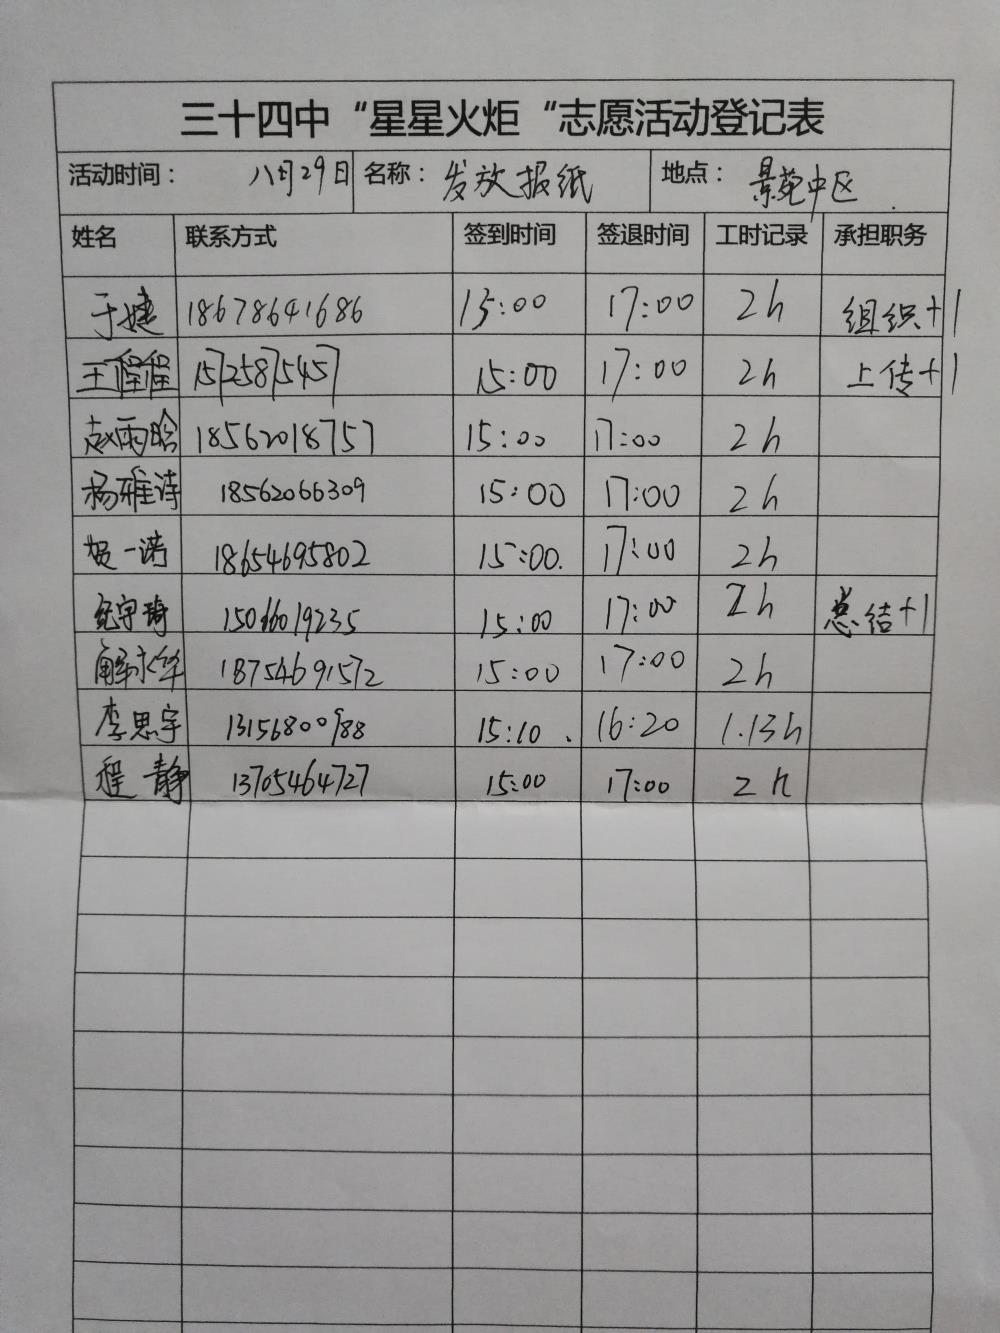 三十四中“星星火炬“志愿活动登记表
活动时间： 八月29日 名称： 发放报纸 地点： 景苑中区
姓名 联系方式 签到时间 签退时间 工时记录 承担职务
于婕 18678641686 15:00 17:00 2h 组织+1
王俚俚 15725875457 15:00 17:00 2h 上传+1
赵雨晗 18562018757 15:00 17:00 2h
杨雅诗 18562066309 15:00 17:00 2h
贺一诺 18654695802 15:00. 17:00 2h
纪宇琦 15066019235 15:00 17:00 2h 总结+1
解永华 18754691572 15:00 17:00 2h
李思宇 13156800988 15:10. 16:20 1.13h
程静 13705464727 15:00 17:00 2h